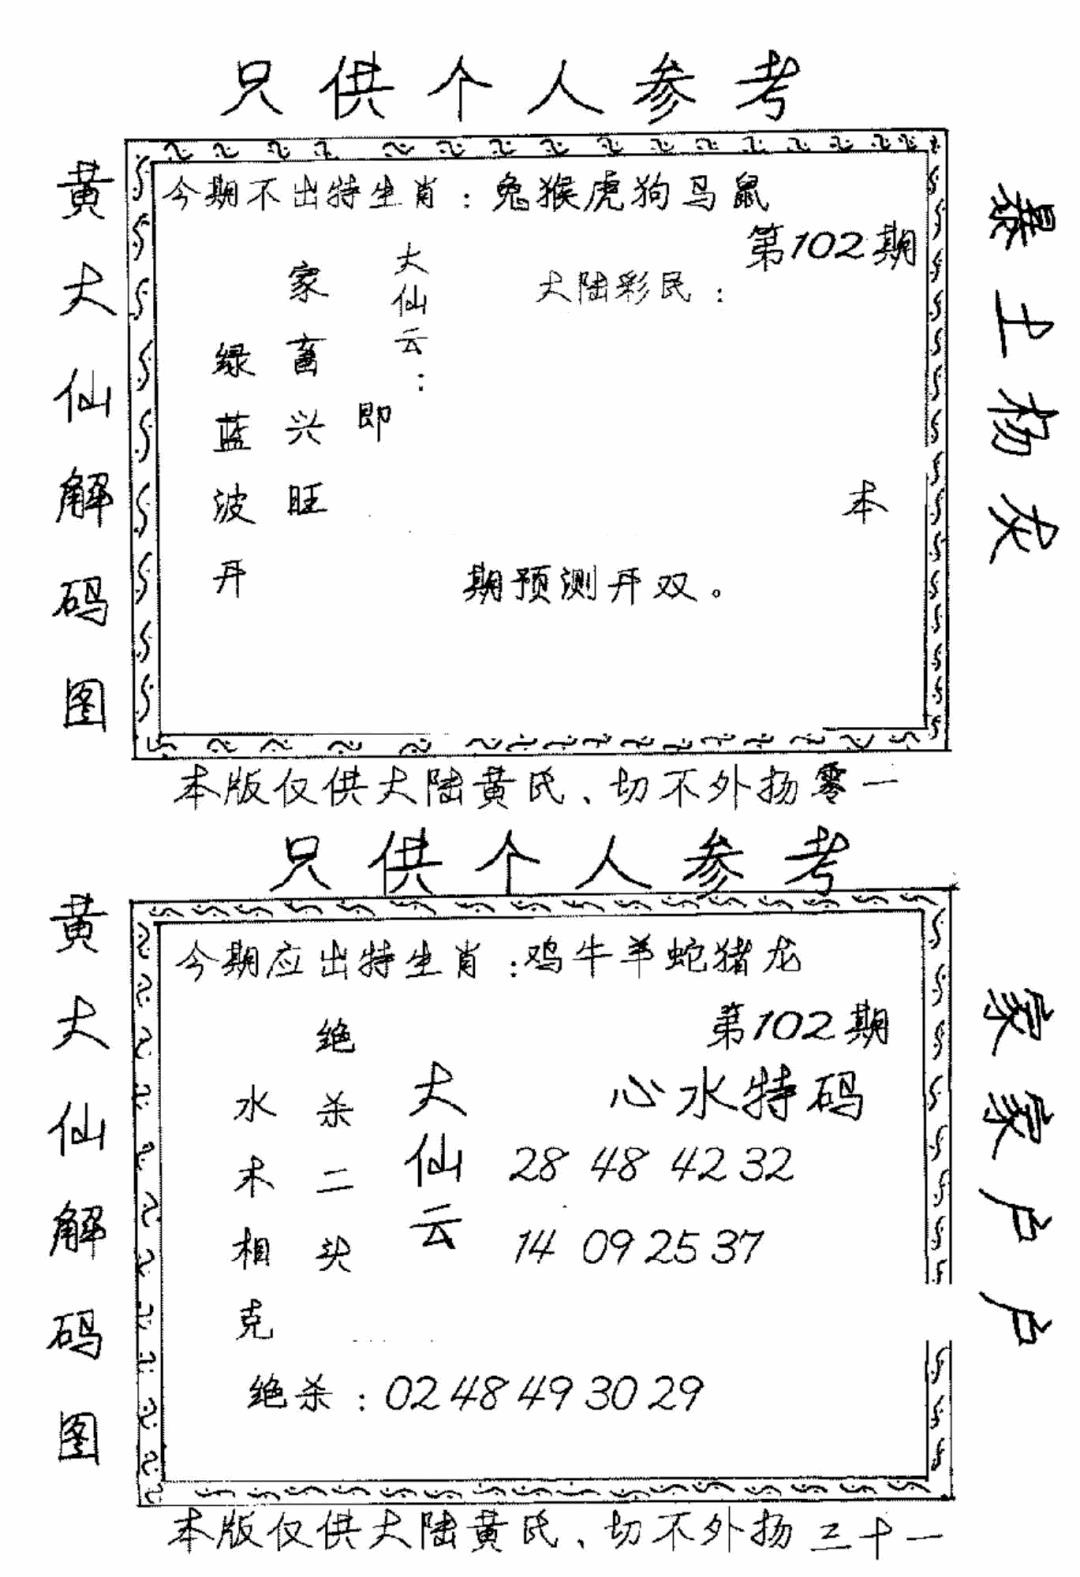 只供个人参考
黄大仙解码图
今期不出特生肖：兔猴虎狗马鼠
第102期
大陆彩民：
大仙云：
即
家畜兴旺
绿蓝波开
本
期预测开双。
暴土杨灰
本版仅供大陆黄氏、切不外扬零一
只供个人参考
黄大仙解码图
今期应出特生肖：鸡牛羊蛇猪龙
第102期
心水特码
28 48 42 32
14 09 25 37
大仙云
绝杀二头
水木相克
绝杀：02 48 49 30 29
家家户户
本版仅供大陆黄氏、切不外扬三十一